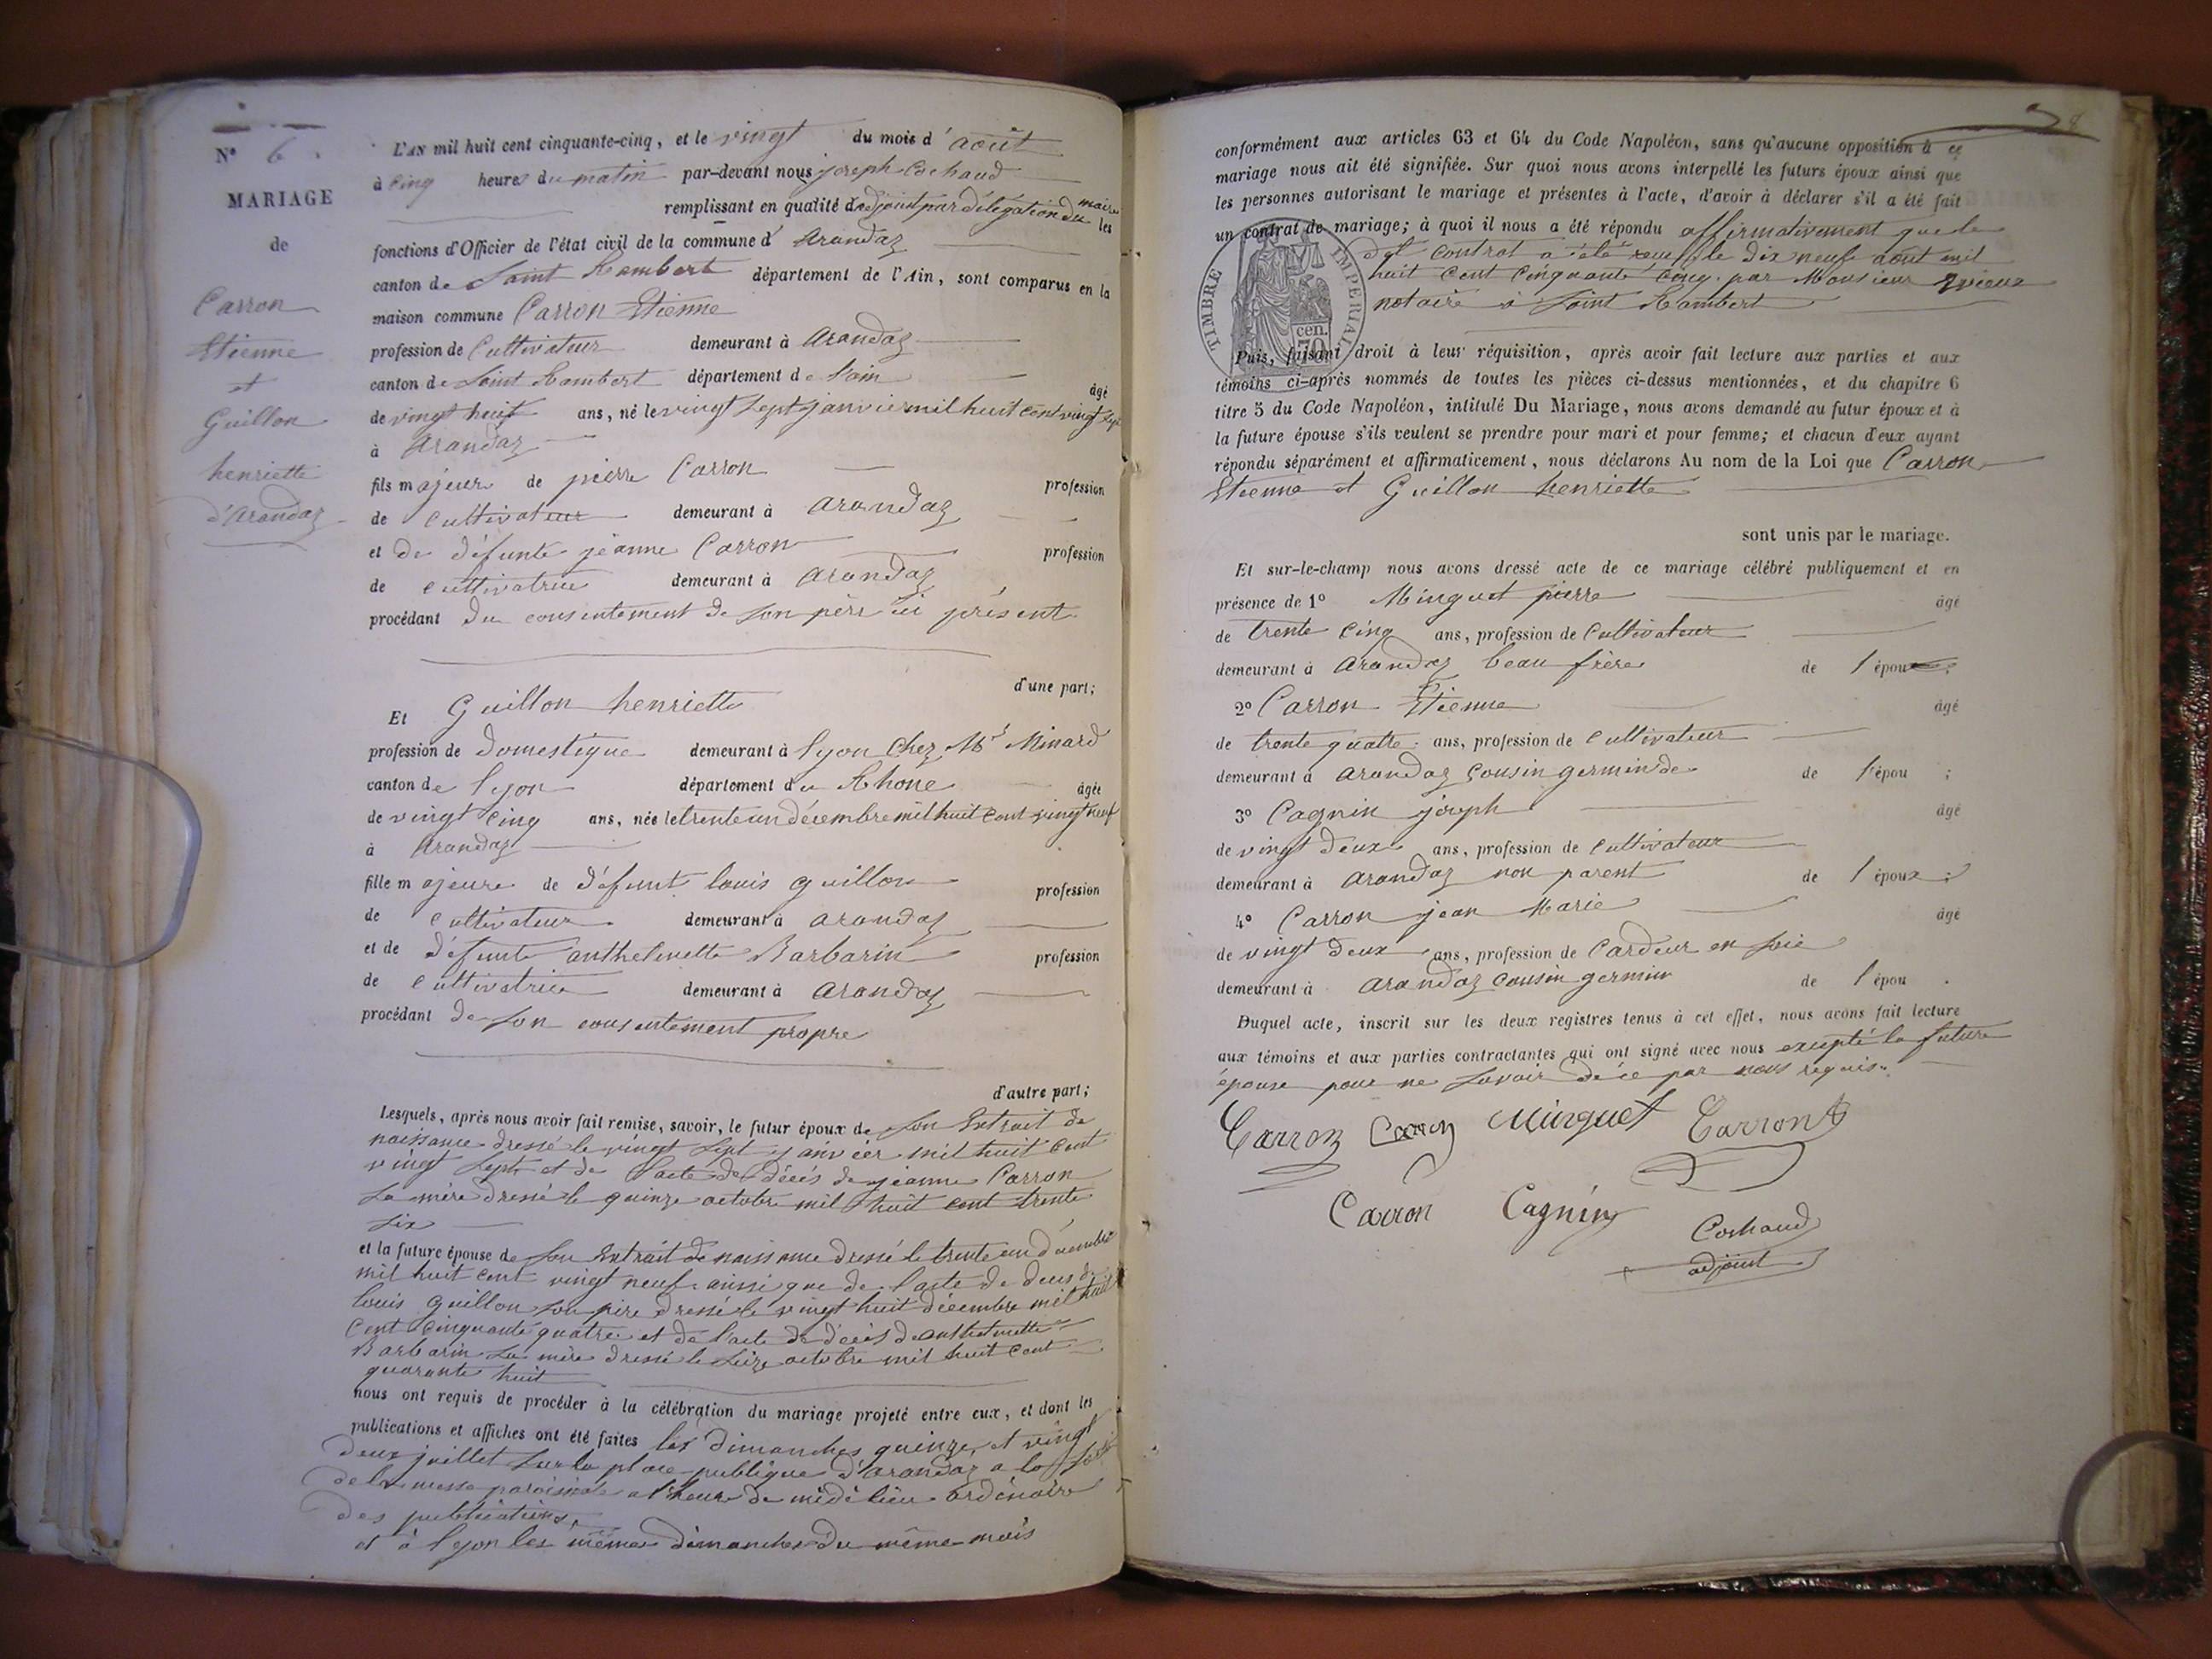 N° 6.
MARIAGE
de
Carron
Etienne
et
Guillon
henriette
d'Arandaz
L'AN mil huit cent cinquante-cinq, et le vingt du mois d'août
à cinq heures du matin par-devant nous joseph Cochaud
remplissant en qualité d'adjoint par délégation du maire les
fonctions d'Officier de l'état civil de la commune d'Arandaz
canton de Saint Rambert département de l'Ain, sont comparus en la
maison commune Carron Etienne
profession de Cultivateur demeurant à Arandaz
canton de Saint Rambert département de l'ain âgé
de vingt huit ans, né le vingt sept janvier mil huit cent vingt sept
à Arandaz
fils majeur de pierre Carron profession
de cultivateur demeurant à Arandaz
et de défunte jeanne Carron profession
de cultivatrice demeurant à Arandaz
procédant du consentement de son père ici présent
d'une part;
Et Guillon henriette
profession de Domestique demeurant à lyon Chez Mr Minard
canton de lyon département du Rhone âgée
de vingt cinq ans, née le trente un décembre mil huit cent vingt neuf
à Arandaz
fille majeure de défunt louis guillon profession
de cultivateur demeurant à arandaz
et de défunte anthelmette Barbarin profession
de cultivatrice demeurant à Arandaz
procédant de son consentement propre
d'autre part;
Lesquels, après nous avoir fait remise, savoir, le futur époux de son Extrait de
naissance dressé le vingt sept janvier mil huit cent
vingt sept et de l'acte de décés de jeanne Carron
sa mère dressé le quinze octobre mil huit cent trente
six
et la future épouse de son Extrait de naissance dressé le trente un décembre
mil huit cent vingt neuf ainsi que de l'acte de deces de
louis guillon son père dressé le vingt huit décembre mil huit
cent cinquante quatre et de l'acte de décès de anthelmette
Barbarin sa mère dressé le seize octobre mil huit cent
quarante huit
nous ont requis de procéder à la célébration du mariage projeté entre eux, et dont les
publications et affiches ont été faites les dimanches quinze et vingt
deux juillet sur la place publique d'arandaz a la sortie
de la messe paroissiale a l'heure de midi lieu ordinaire
des publications,
et à lyon les mêmes dimanches du même mois
conformément aux articles 63 et 64 du Code Napoléon, sans qu'aucune opposition à ce
mariage nous ait été signifiée. Sur quoi nous avons interpellé les futurs époux ainsi que
les personnes autorisant le mariage et présentes à l'acte, d'avoir à déclarer s'il a été fait
un contrat de mariage; à quoi il nous a été répondu affirmativement que le
dit contrat a été reçu le dix neuf août mil
huit cent cinquante cinq par Monsieur
notaire à Saint Rambert
TIMBRE IMPERIAL
70 cen.
Puis, faisant droit à leur réquisition, après avoir fait lecture aux parties et aux
témoins ci-après nommés de toutes les pièces ci-dessus mentionnées, et du chapitre 6
titre 5 du Code Napoléon, intitulé Du Mariage, nous avons demandé au futur époux et à
la future épouse s'ils veulent se prendre pour mari et pour femme; et chacun d'eux ayant
répondu séparément et affirmativement, nous déclarons Au nom de la Loi que Carron
Etienne et Guillon henriette
sont unis par le mariage.
Et sur-le-champ nous avons dressé acte de ce mariage célébré publiquement et en
présence de 1° Minguet pierre âgé
de trente cinq ans, profession de Cultivateur
demeurant à arandaz beau frère de l'époux;
2° Carron Etienne âgé
de trente quatre ans, profession de cultivateur
demeurant à arandaz cousin germin de de l'épou ;
3° Cagnin joseph âgé
de vingt deux ans, profession de cultivateur
demeurant à arandaz non parent de l'époux;
4° Carron jean Marie âgé
de vingt deux ans, profession de Cardeur en soie
demeurant à arandaz cousin germin de l'épou .
Duquel acte, inscrit sur les deux registres tenus à cet effet, nous avons fait lecture
aux témoins et aux parties contractantes qui ont signé avec nous excepté la future
épouse pour ne savoir de ce par nous requis.
Carron Carron Minguet Carron
Carron Cagnin Cochaud
adjoint